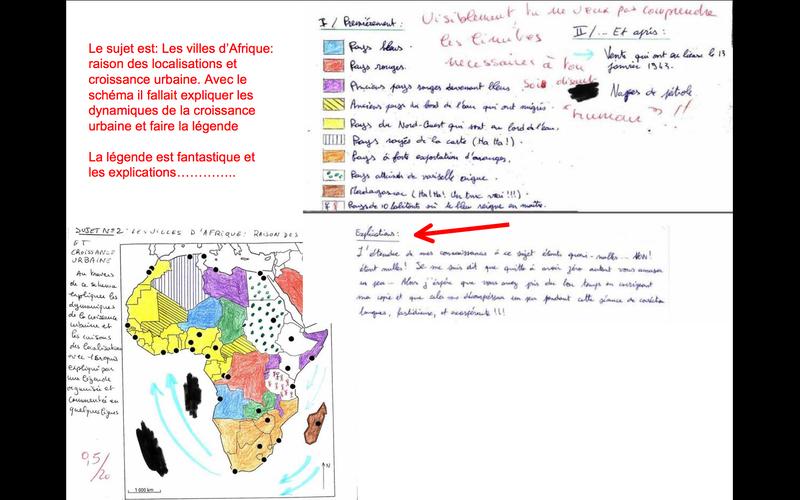 Le sujet est: Les villes d'Afrique:
raison des localisations et
croissance urbaine. Avec le
schéma il fallait expliquer les
dynamiques de la croissance
urbaine et faire la légende
La légende est fantastique et
les explications…………..
I / Premièrement :
Pays bleus.
Pays rouges.
Anciens pays rouges devenant bleus.
Anciens pays du bord de l'eau qui ont migrés.
Pays du Nord-Ouest qui sont au bord de l'eau.
Pays rayés de la carte (Ha Ha!).
Pays à forte exportation d'oranges.
Pays atteinds de varicelle aigue.
Madagascar (Ha! Ha! Un truc vrai !!!)
Pays de 10 habitants où le bleu reigne en maitre.
Visiblement tu ne veux pas comprendre
les limites
nécessaires à ton
soi disant
"humour" !!
II /... Et après :
Vents qui ont eu lieux le 13
janvier 1943.
Napes de pétrole
SUJET N°2 : LES VILLES D'AFRIQUE : RAISON DES
ET
CROISSANCE
URBAINE
Au travers
de ce schéma
expliquez les
dynamiques
de la croissance
urbaine et
les raisons
des localisations
par
une légende
organisée et
commentée en
quelques lignes
0,5/20
1 000 km
N
Explications :
J'étendue de mes connaissances à ce sujet étants quasi-nulles... NON!
étant nulles! Je me suis dit que quitte à avoir zéro autant vous amuser
un peu... Alors j'espère que vous avez pris du bon temps en corrigeant
ma copie et que cela vous décrispera un peu pendant cette séance de correction
longues, fastidieuse, et exaspérante !!!